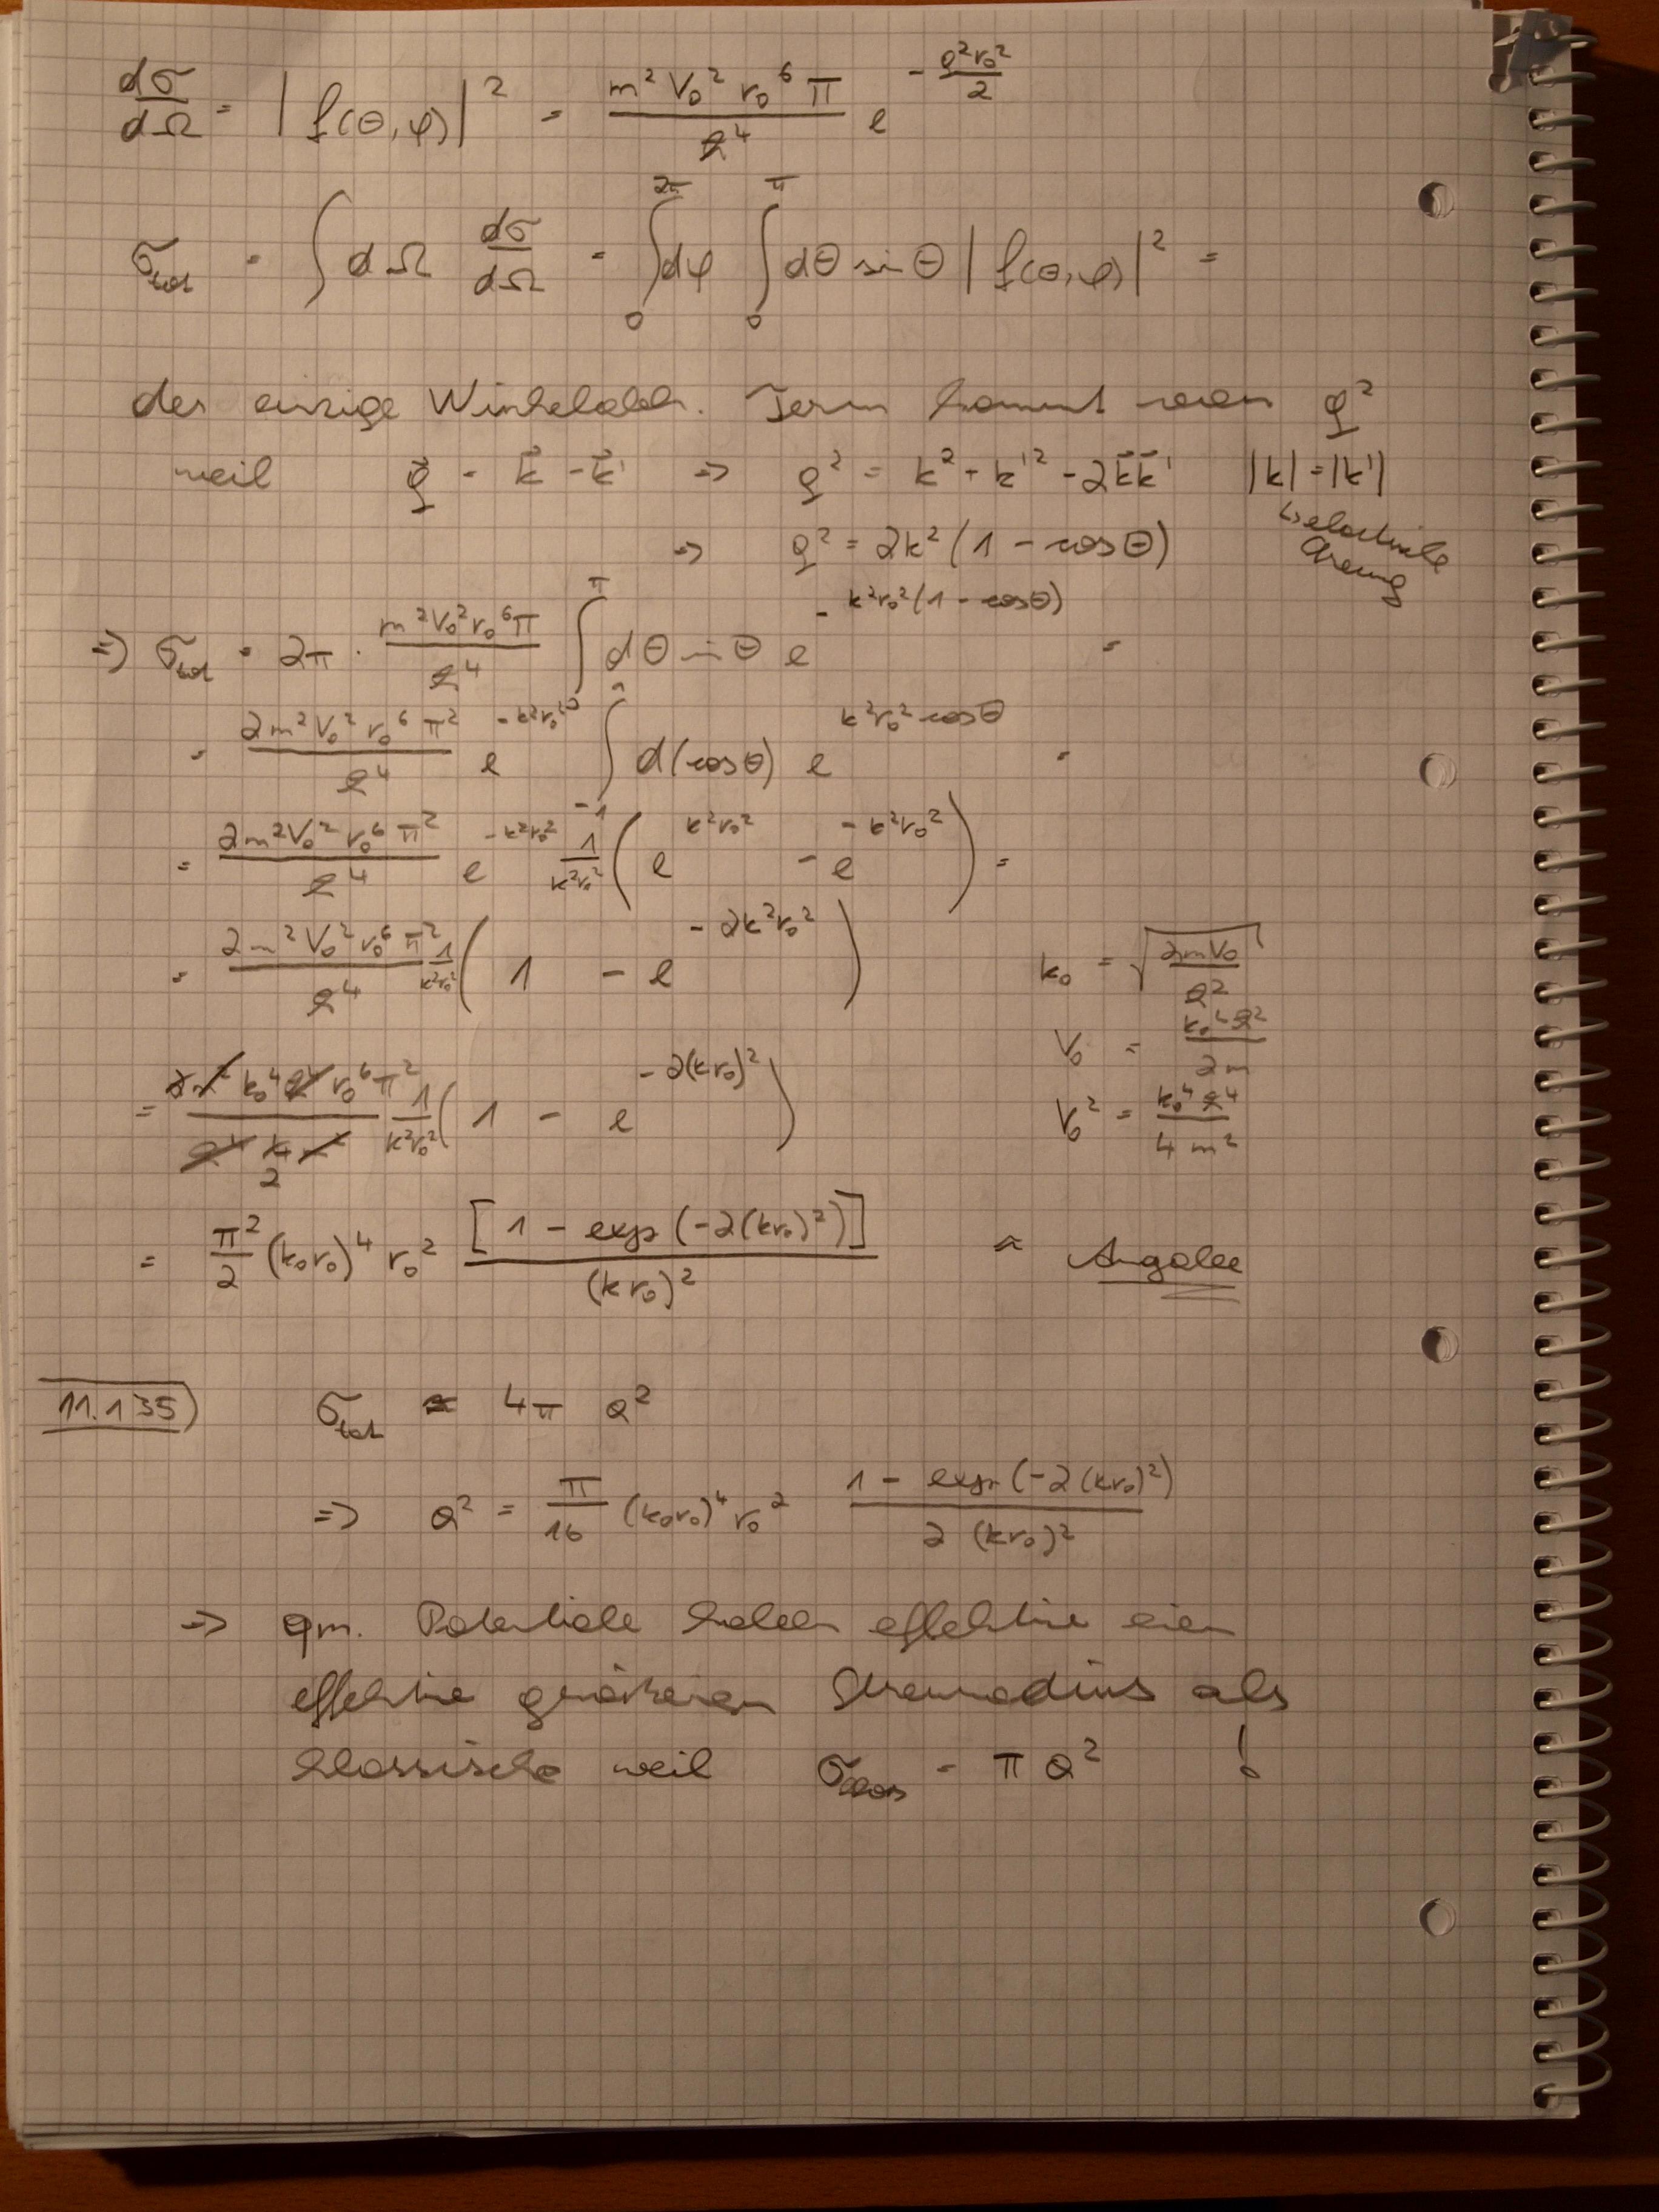 dσ/dΩ = |f(θ,φ)|² = m² V₀² r₀⁶ π / ℏ⁴ e^(-q²r₀²/2)
σ_tot = ∫ dΩ dσ/dΩ = ∫₀^2π dφ ∫₀^π dθ sinθ |f(θ,φ)|² =
der einzige Winkelabh. Term kommt von q²
weil q⃗ = k⃗ - k⃗' ⇒ q² = k² + k'² - 2k⃗k⃗' |k| = |k'|
↳ elastische Streuung
⇒ q² = 2k² (1 - cosθ)
⇒ σ_tot = 2π · m²V₀²r₀⁶π / ℏ⁴ ∫₀^π dθ sinθ e^(-k²r₀²(1 - cosθ)) =
= 2m²V₀²r₀⁶π² / ℏ⁴ e^(-k²r₀²) ∫₋₁^1 d(cosθ) e^(k²r₀² cosθ) =
= 2m²V₀²r₀⁶π² / ℏ⁴ e^(-k²r₀²) 1/(k²r₀²) (e^(k²r₀²) - e^(-k²r₀²)) =
= 2m²V₀²r₀⁶π² / ℏ⁴ 1/(k²r₀²) (1 - e^(-2k²r₀²))
k₀ = √(2mV₀ / ℏ²)
V₀ = k₀²ℏ² / 2m
V₀² = k₀⁴ℏ⁴ / 4m²
= 2m² k₀⁴ℏ⁴ r₀⁶π² / ℏ⁴ 4m² 2 1/(k²r₀²) (1 - e^(-2(kr₀)²))
= π²/2 (k₀r₀)⁴ r₀² [1 - exp(-2(kr₀)²)] / (kr₀)² ≙ Angabe
11.135) σ_tot = 4π a²
⇒ a² = π/16 (k₀r₀)⁴ r₀² 1 - exp(-2(kr₀)²) / 2(kr₀)²
⇒ qm. Potentiale haben effektive einen
effektive größeren Streuradius als
klassische weil σ_klass = π a² !